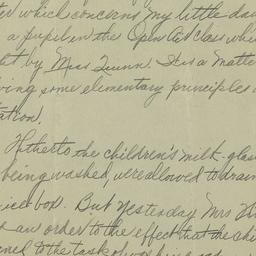 which concerns my little dau
a pupil in the Open Air Class whi
by Miss Quinn. It is a matte
ing some elementary principles
tation!
Hitherto the children's milk-glas
being washed, were allowed to drain
ice box. But yesterday Mrs
an order to the effect that the chi
to the task of